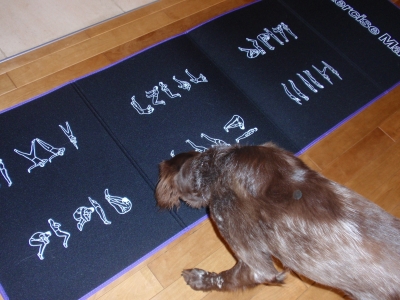 xercise Ma